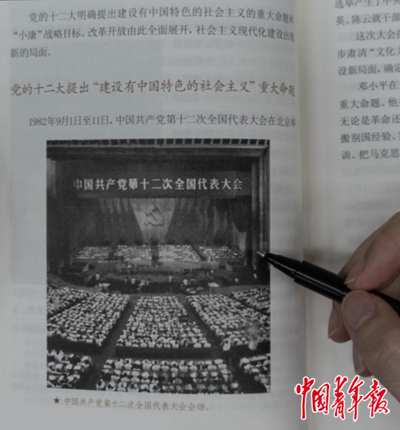 党的十二大明确提出建设有中国特色的社会主义的重大命题和
"小康"战略目标，改革开放由此全面展开，社会主义现代化建设出现
新的局面。
党的十二大提出"建设有中国特色的社会主义"重大命题
1982年9月1日至11日，中国共产党第十二次全国代表大会在北京
中国共产党第十二次全国代表大会
★ 中国共产党第十二次全国代表大会会场。
选举产生了中
英、陈云就干部
这次大会的
步肃清"文化大
设新局面，确定
邓小平在
重大命题。他
无论是革命还
搬别国经验、
训，把马克思
中国青年报